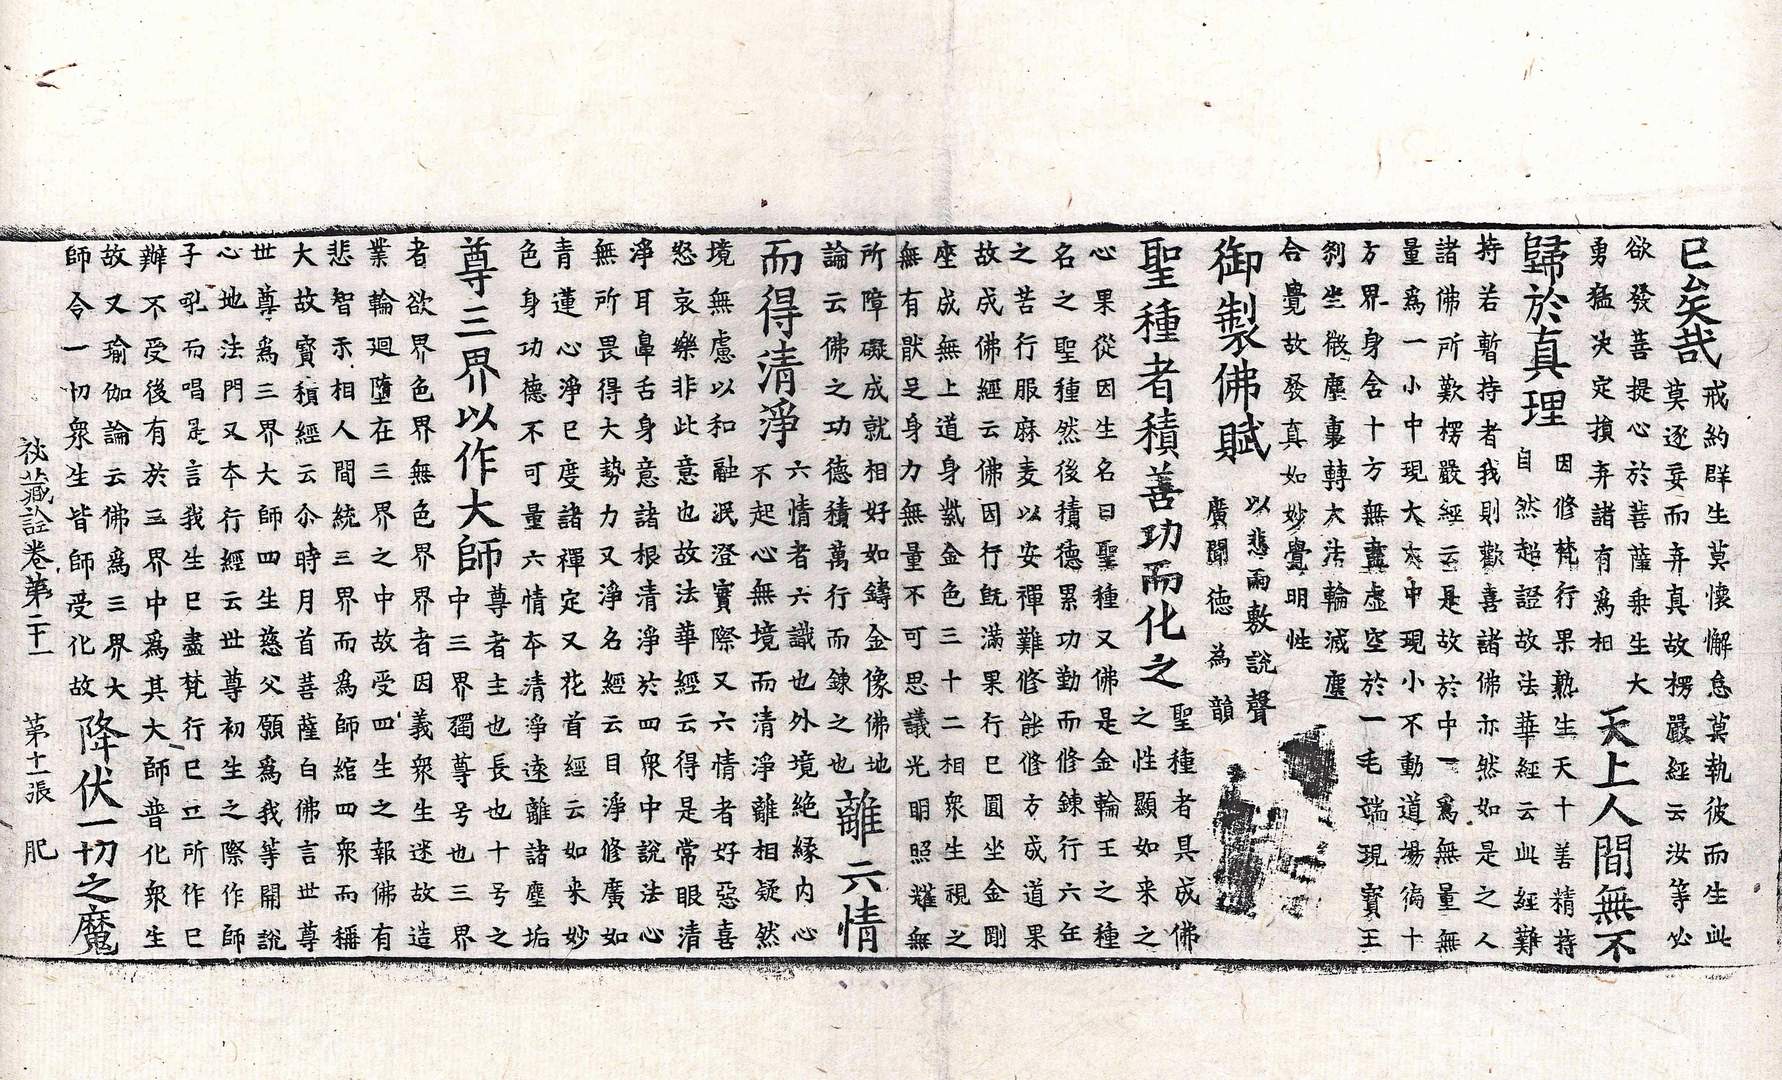 已矣哉
戒約群生莫懷懈怠莫執彼而生此
莫逐妄而弃真故楞嚴經云汝等必
欲發菩提心於菩薩乘生大
勇猛決定損弃諸有爲相
天上人間無不
歸於真理
因修梵行果熟生天十善精持
自然超證故法華經云此經難
持若暫持者我則歡喜諸佛亦然如是之人
諸佛所歎楞嚴經云是故於中一爲無量無
量爲一小中現大大中現小不動道場徧十
方界身含十方無盡虛空於一毛端現寳王
刹坐微塵裏轉大法輪滅塵
合覺故發真如妙覺明性
御製佛賦
以悲雨敷說聲
廣聞德為韻
聖種者積善功而化之
聖種者具成佛
之性顯如来之
心果從因生名曰聖種又佛是金輪王之種
名之聖種然後積德累功勤而修鍊行六年
之苦行服麻麦以安禪難修能修方成道果
故成佛經云佛因行既滿果行已圓坐金剛
座成無上道身紫金色三十二相衆生視之
無有猒足身力無量不可思議光明照耀無
所障礙成就相好如鑄金像佛地
論云佛之功德積萬行而鍊之也
離六情
而得清淨
六情者六識也外境絶縁内心
不起心無境而清淨離相疑然
境無慮以和融泯澄實際又六情者好惡喜
怒哀樂非此意也故法華經云得是常眼清
淨耳鼻舌身意諸根清淨於四衆中說法心
無所畏得大勢力又淨名經云目淨修廣如
青蓮心淨已度諸禪定又花首經云如来妙
色身功德不可量六情本清淨遠離諸塵垢
尊三界以作大師
尊者主也長也十号之
中三界獨尊号也三界
者欲界色界無色界界者因義衆生迷故造
業輪迴墮在三界之中故受四生之報佛有
悲智示相人間統三界而爲師綰四衆而稱
大故寳積經云尒時月首菩薩白佛言世尊
世尊爲三界大師四生慈父願爲我等開說
心地法門又本行經云世尊初生之際作師
子吼而唱是言我生已盡梵行已立所作已
辦不受後有於三界中爲其大師普化衆生
故又瑜伽論云佛爲三界大
師令一切衆生皆師受化故
降伏一切之魔
祕藏詮卷第二十一 第十一張 肥